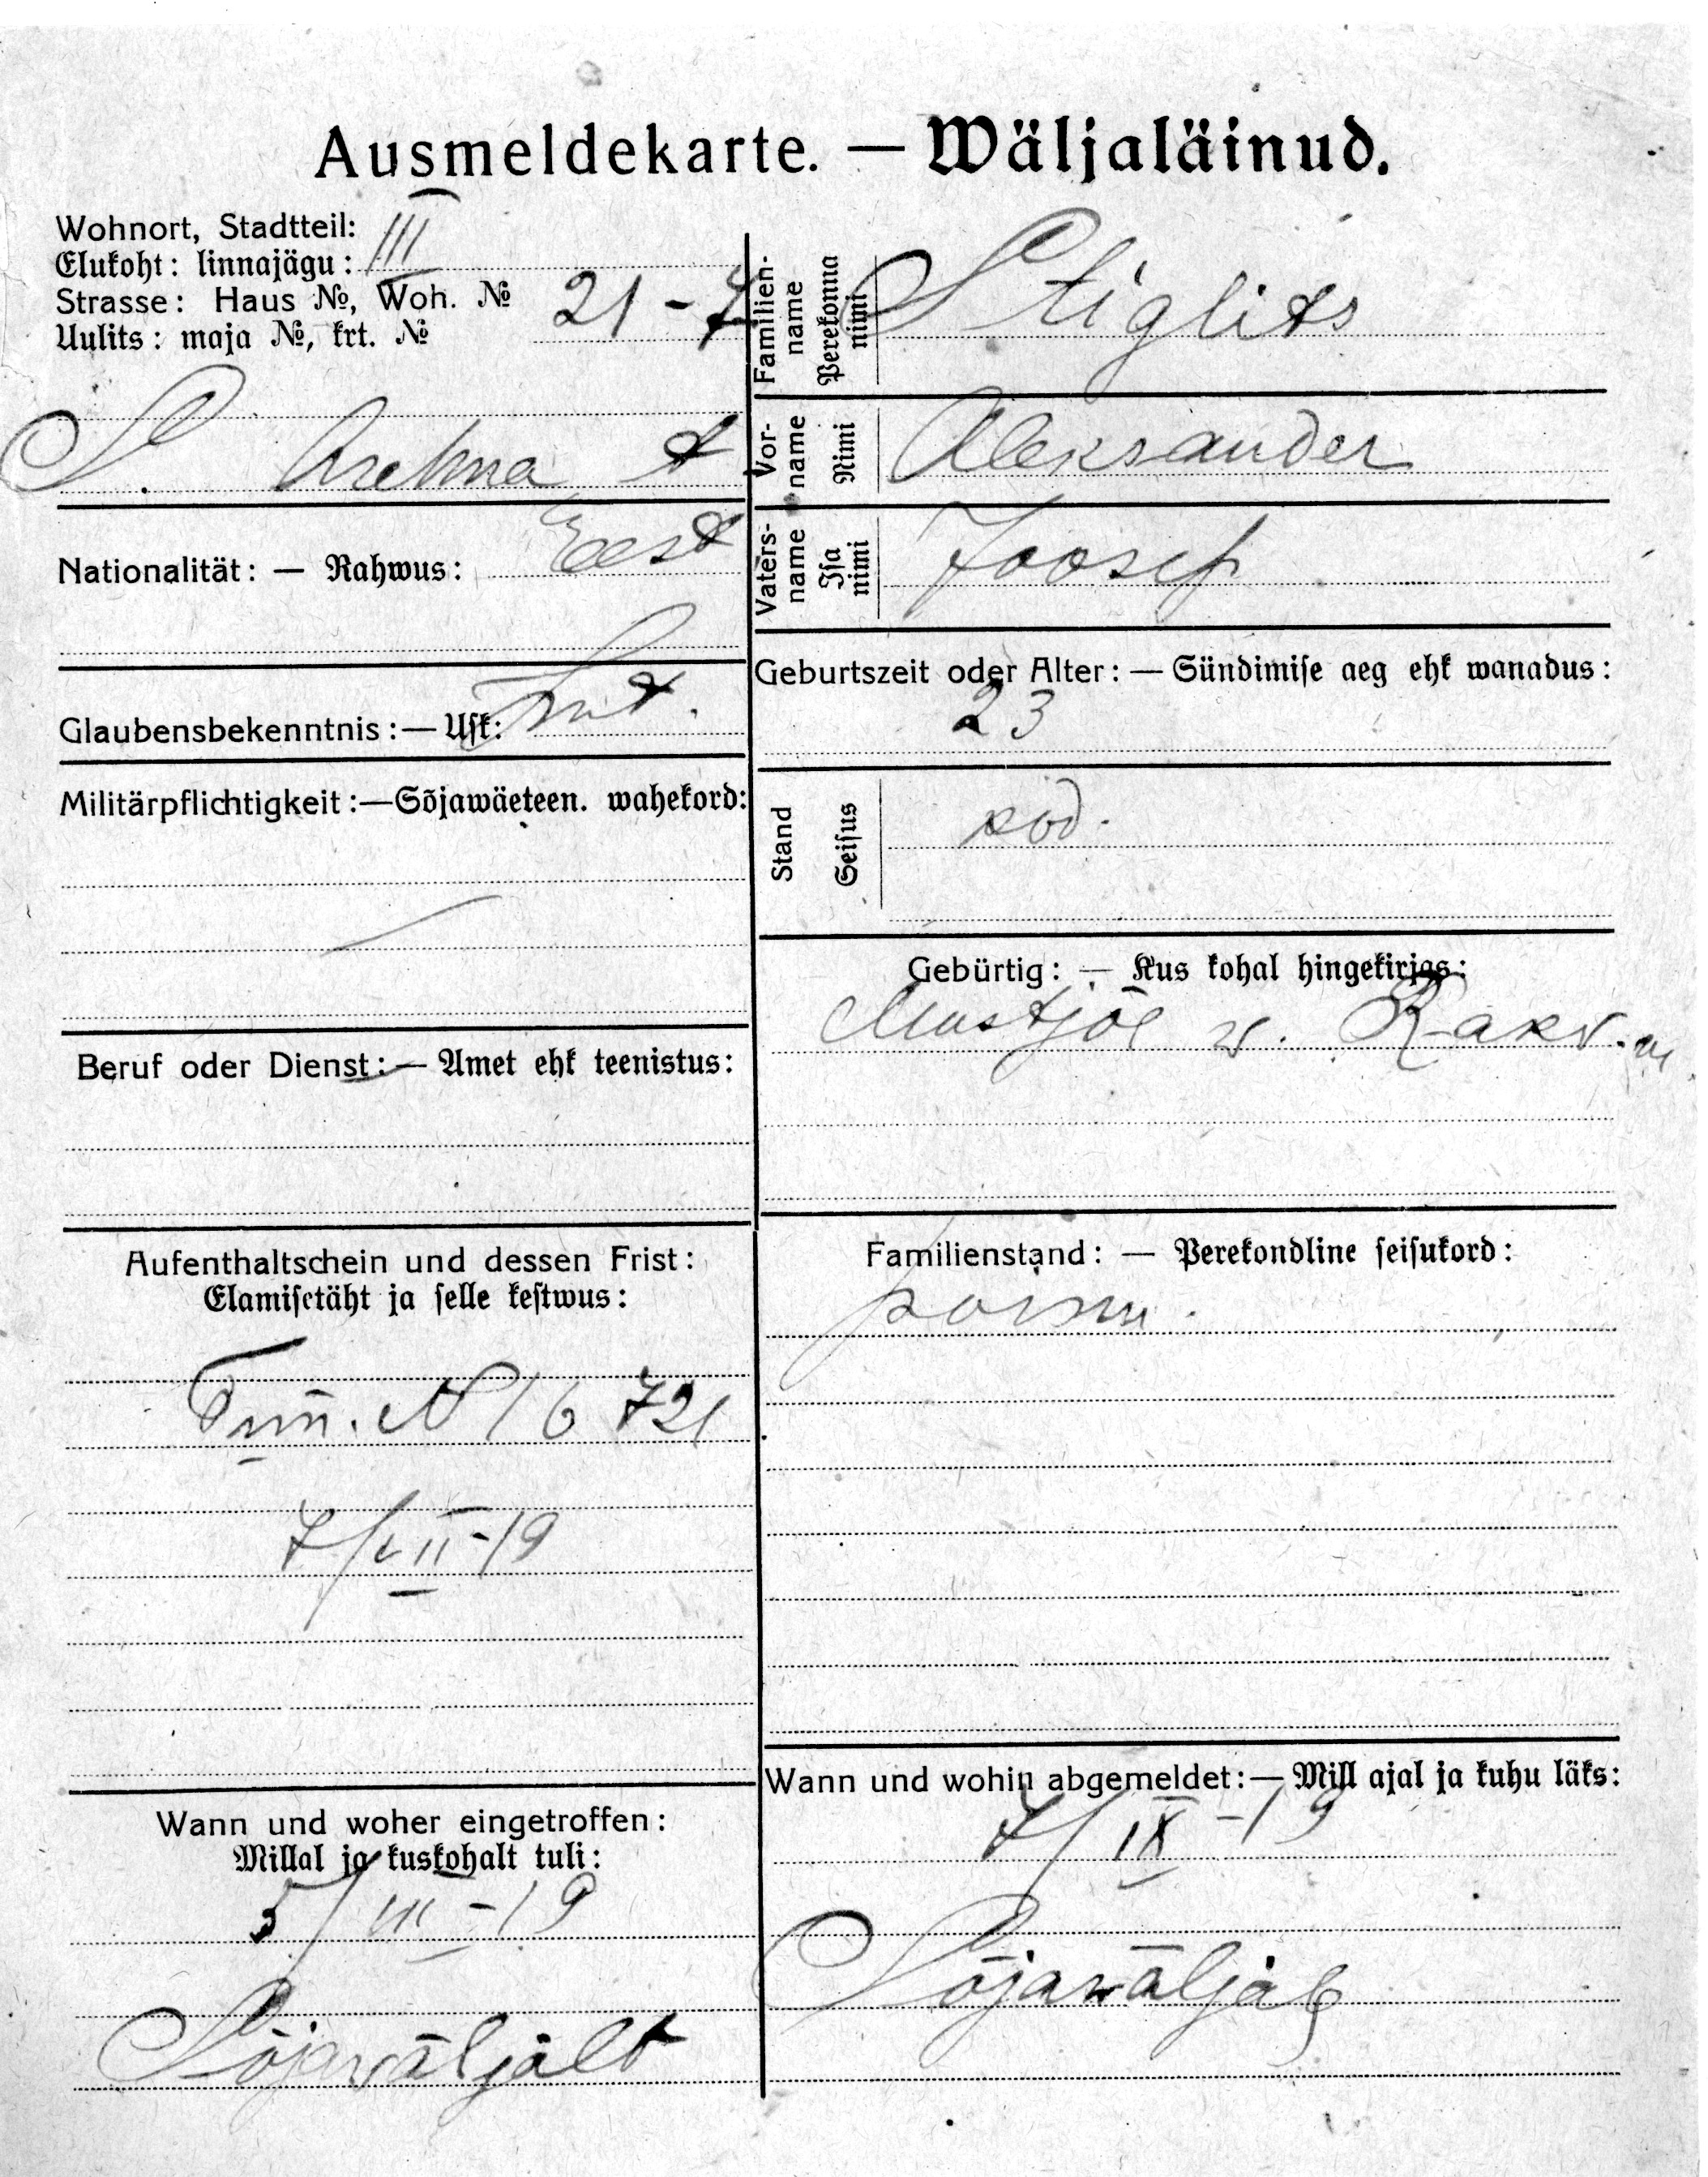 Ausmeldekarte. — Wäljaläinud.
Wohnort, Stadtteil:
Elukoht: linnajägu: III
Strasse: Haus №, Woh. №
Uulits: maja №, krt. № 21-7
S.
Nationalität: — Rahwus: Eest
Glaubensbekenntnis: — Usk: Lut.
Militärpflichtigkeit: — Sõjawäeteen. wahekord:
Beruf oder Dienst: — Amet ehk teenistus:
Aufenthaltschein und dessen Frist:
Elamisetäht ja selle kestwus:
Tun. № 16721
7/VII-19
Wann und woher eingetroffen:
Millal ja kuskohalt tuli:
5/III-19
Sõjawäljält
Familien-
name
Perekonna
nimi
Stiglits
Vor-
name
Nimi
Aleksander
Vaters-
name
Isa
nimi
Joosep
Geburtszeit oder Alter: — Sündimise aeg ehk wanadus:
23
Stand
Seisus
sod.
Gebürtig: — Kus kohal hingekirjas:
Mustjõe w. Rakv. m
Familienstand: — Perekondline seisukord:
poism.
Wann und wohin abgemeldet: — Mill ajal ja kuhu läks:
7/IX-19
Sõjawäljäle